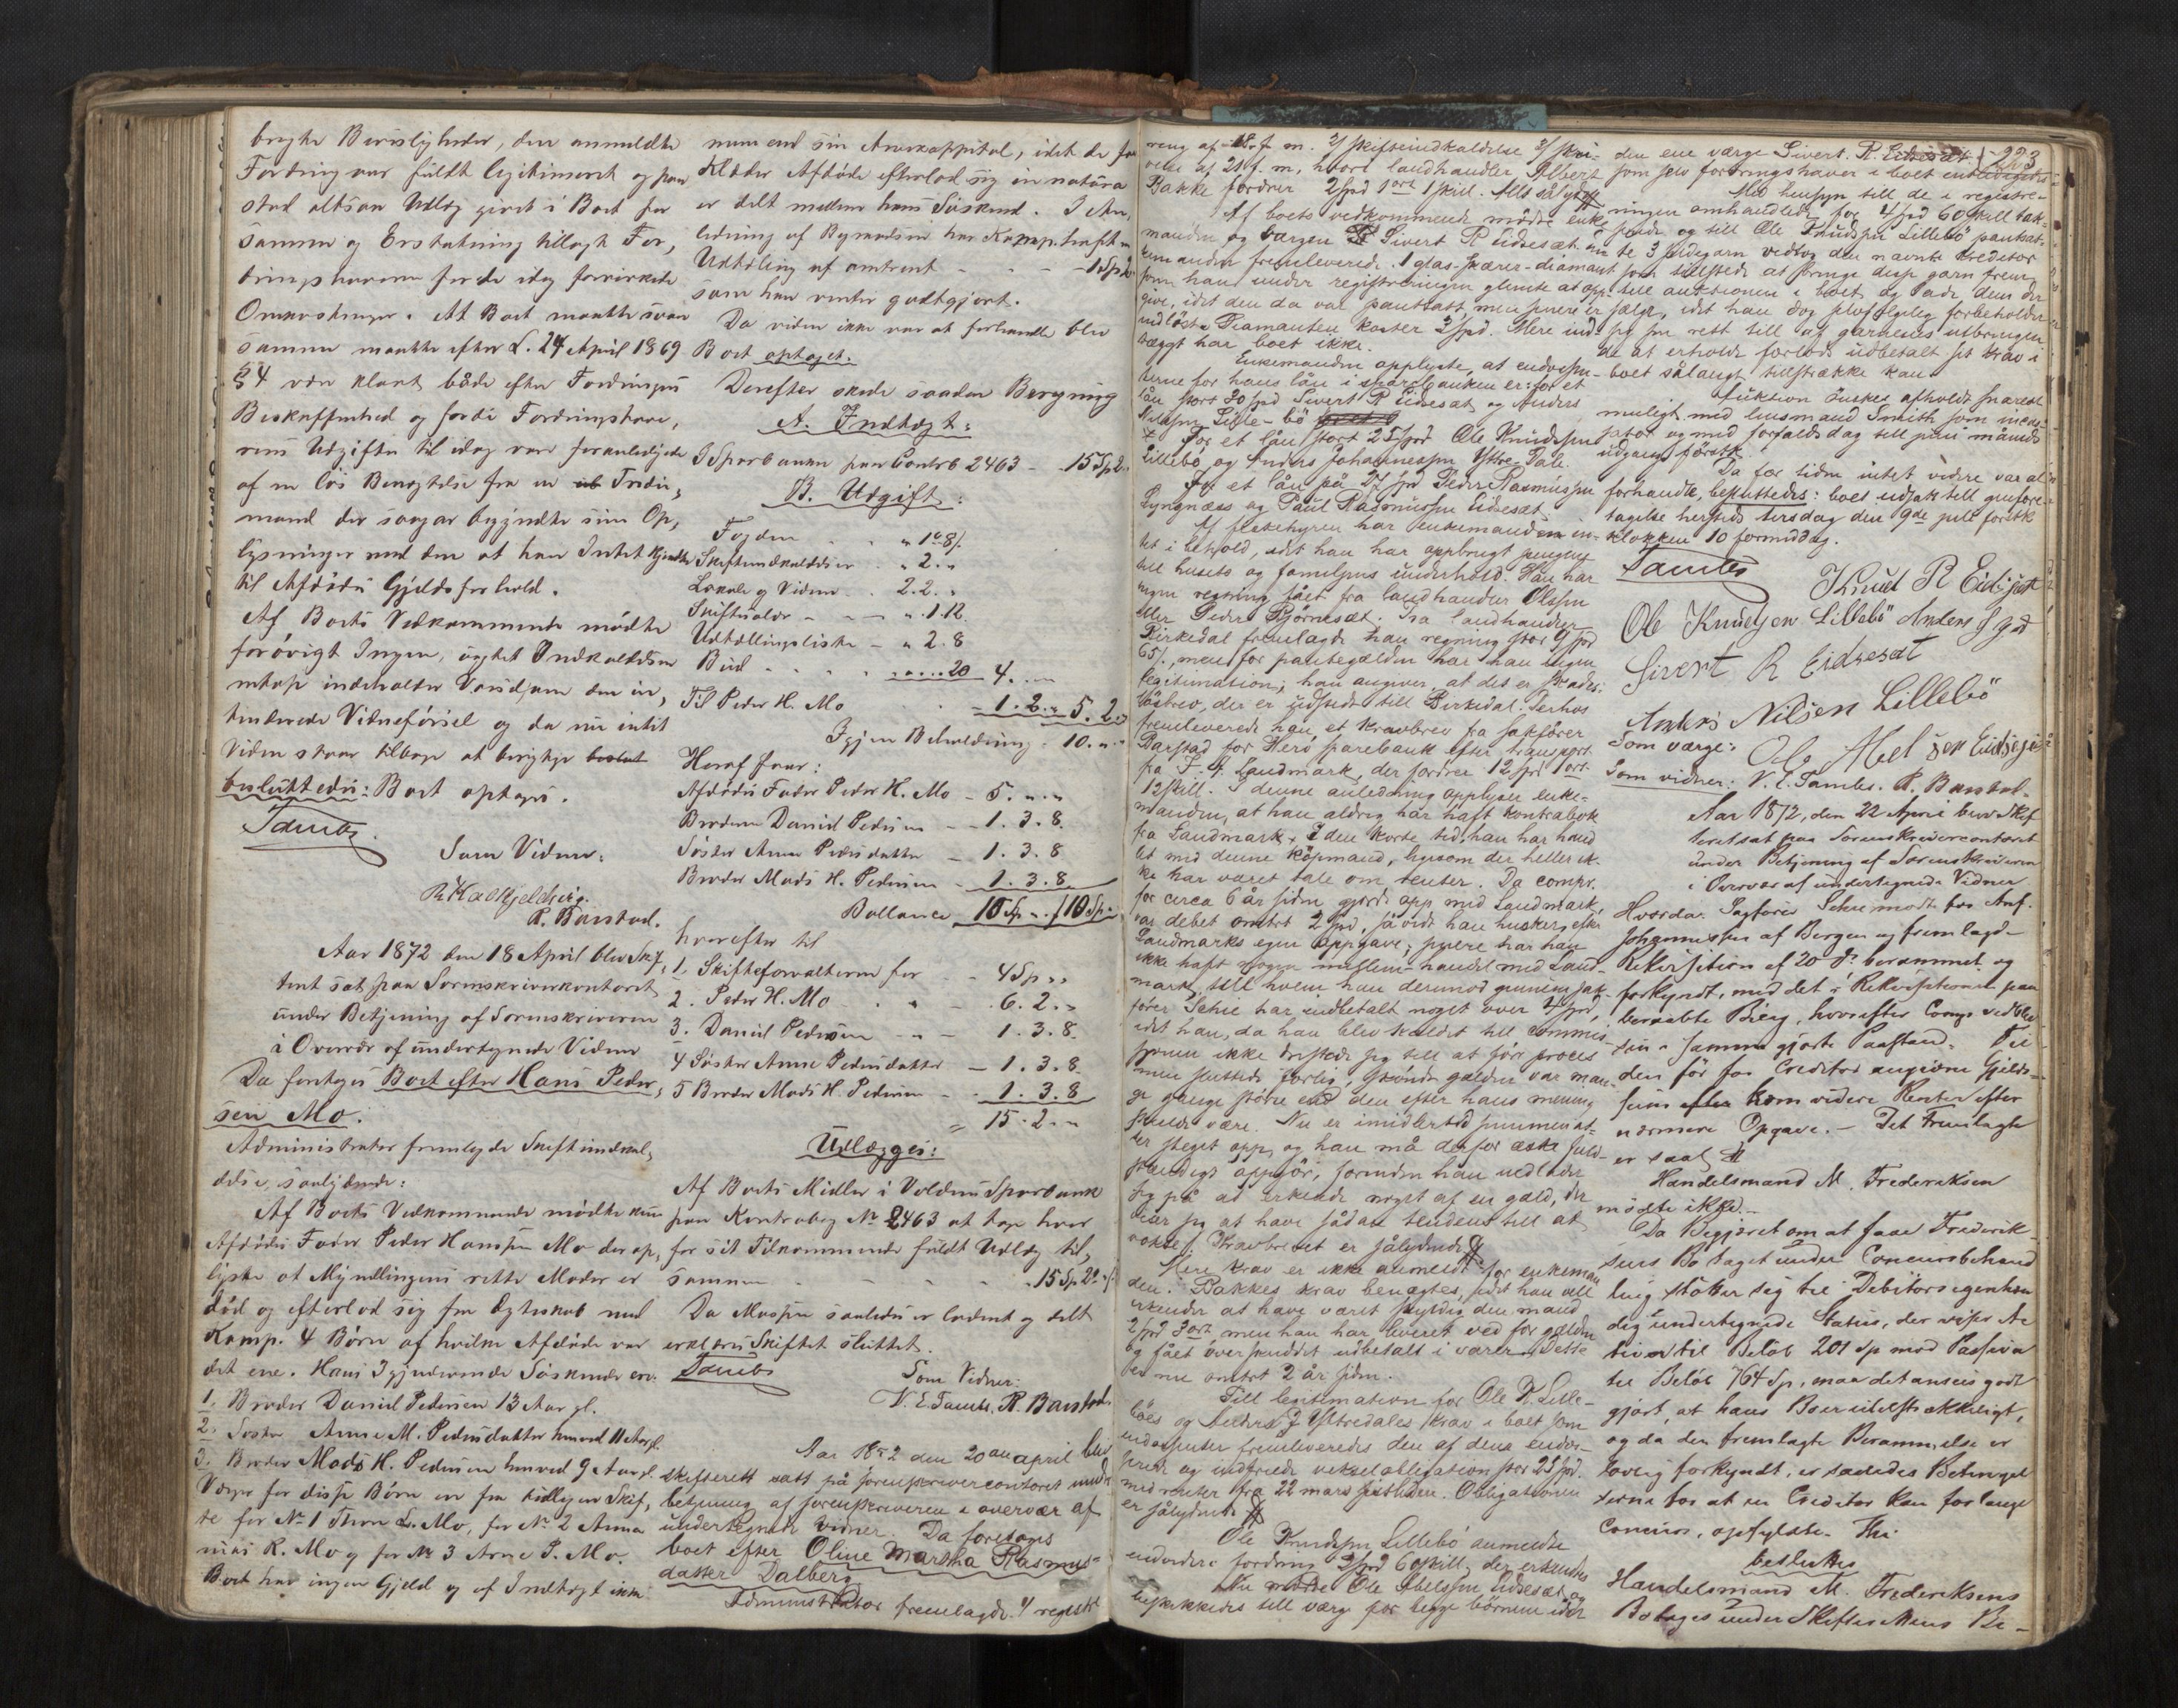 bragte Bevisligheder, den anmeldte
Fordring var fuldt legitimeret og paa-
stod altsaa Udlæg givet i Boet for
samme og Erstatning tillagt For,
dringshaveren for de idag forvirkede
Omkostninger. At Boet maatte svare
samme maatte efter L. 24 April 1869
§ 4 være klart både efter Fordringens
Beskaffenhed og fordi Fordringshave,
rens Udgifter til idag var foranledigede
af en løs Benægtelse fra en Tredie,
mand der
lysninger med den at han Intet kjendte
til Afdødes Gjeldsforhold.
Af Boets Vedkommende mødte
forøvrigt Ingen, uagtet Indkaldelsen
Vidneførsel og da nu intet
Viden staar tilbage at
besluttedes: Boet optages.
Tambs
Som Vidner:
R. Barstad.
Aar 1872 den 18 April blev Skif,
teret sat paa Sorenskriverkontoret
under Betjening af Sorenskriveren
i Overvær af undertegnede Vidner
Da foretages Boet efter Hans Peder,
sen Mo.
Administrator fremlagde Skifteindkal,
delse, saalydende:
Af Boets Vedkommende mødte kun
Afdødes Fader Peder Hansen Mo der op,
lyste at Myndlingens rette Moder er
død og efterlod sig fra Ægteskab med
Komp. 4 Børn af hvilke Afdøde var
det ene. Hans Igjenlevende Søskende ere:
1. Broder Daniel Pedersen 13 Aar gl.
2. Søster Anne M. Pedersdatter henved 11 Aar gl.
3. Broder Mads H. Pedersen henved 9 Aar gl.
Værger for disse Børn er fra tidligere Skif,
te for No 1 L. Mo, for No 2
R. Mo og for No 3 Arne P. Mo.
Boet har ingen Gjeld og af Indtægt ikke
mere end sin Arvekappital, idet de faa
Klæder Afdøde efterlod sig in natura
er delt mellem hans Søskend. I An,
ledning af Begravelsen har Komp. hafft en
Udtælling af omtrent - - - 1 Spd
som han venter godtgjort.
Da viden ikke var at forhandle blev
Boet optaget.
Derefter skede saadan Beregning
A. Indtægt:
I Sparbanken paa Contrb 2463 - 15 Sp 2.
B. Udgift:
Fogden " 1.8.
Skifteindkaldelser " 2. "
Lokale og Vidner 2.2. "
Skiftesalær - " 1.12.
Udtællingsliste - " 2.8
Bud " " 20 4. "
Til Peder H. Mo - 1.2. " 5.2. "
Igjen Beholdning - 10. " "
Heraf faar:
Afdødes Fader Peder H. Mo - 5. " "
Broderen Daniel Pedersen - 1.3.8.
Søster Anne Pedersdatter - 1.3.8
Broder Mads H. Pedersen - 1.3.8
Ballance 10 Sp " / 10 Sp "
hvorefter til
1. Skifteforvalteren for - 4 Sp " "
2. Peder H. Mo " 6.2. "
3. Daniel Pedersen " - 1.3.8.
4 Søster Anne Pedersdatter - 1.3.8.
5 Broder Mads H. Pedersen - 1.3.8
15.2. "
Udlægges:
Af Boets Midler i Voldens Sparbank
paa Kontrabog No 2463 at tage hver
for sit Tilkommende fuldt Udlæg til,
sammen - - - 15 Sp 2
Da Massen saaledes er
erklæres Skiftet sluttet.
Tambs
Som Vidner:
V. E. Tambs. R. Barstad.
Aar 1872 den 20de april blev
skifterett satt på sorenskrivercontoret under
betjening af sorenskriveren i overvær af
undertegnede vidner. Da foretages
boet efter Oline Martha Rasmus-
datter Dalberg
Administrator fremlagde 1/ registre
223
ring af 18. f. m. 2/ skifteindkaldelse 3/ skri-
velse af 21. f. m, hvori landhandler Albert
Bakke fordrer 2 spd 1 ort 1 skill. Alle sålyd
Af boets vedkommende mødte enke-
manden og værgen Sivert R Eidsesæt. En
kemanden fremleverede 1 glas-skærer-diamant
som han under registreringen glemte at opp-
give, idet den da var pantsatt, men senere er
indløst. Diamanten koster 3 spd. Mere ind-
tægt har boet ikke.
Enkemanden opplyste, at endossen-
terne for hans lån i sparebanken er: for et
lån stort 30 spd Sivert R Eidsesæt og Anders
Nilssen Lille-bö
For et lån stort 25 spd Ole Knudsen
Lillebö og Anders Johannessen Ytre-Dale.
For et lån på 27 spd Peder Rasmussen
Lyngnæs og Paul Rasmussen Eidsesæt.
Af fiskehyren har enkemanden in-
tet i behold, idet han har oppbrugt pengene
till husets og familjens underhold. Han har
ingen regning fået fra landhandler Olsen
eller Peder Bjørnesæt. Fra landhandler
Birkedal fremlagde han regning stor 9 spd
65/, men for pantegælden har han ingen
legitimation; han angiver, at det er skades-
løsbrev, der er udstedt till Birkedal. Derhos
fremleverede han et kravbrev fra sakfører
Barstad for Herø sparebank efter transport
fra F. J. Landmark, der fordrer 12 spd 1 ort
12 skill. I denne anledning opplyser enke-
manden, at han aldrig har haft kontrabok
fra Landmark, i den korte tid, han har hand
let med denne köpmand, ligesom der heller ik-
ke har været tale om renter. Da compr.
for circa 6 år siden gjorde opp med Landmark,
var debet omtrt 2 spd, så vidt han husker, efter
Landmarks egen oppgave; senere har han
ikke haft nogen mellem-handel med Land-
mark, till hvem han derimod gennem sak-
fører Schie har indbetalt noget over 2 spd,
idet han, da han blev kaldet till commis-
sionen ikke dristede sig till at føre proces
men sluttede forlig, skönt gælden var man-
ge gange större end den efter hans mening
skulde være. Nu er imidlertid summen at-
ter steget opp, og han må derfor æske fuld-
stændigt oppgör, forinden han indlader
sig på at erkende noget af en gæld, der
viser sig at have sådan tendens till at
vokse. Kravbrevet er sålydende
Mere krav er ikke anmeldt for enkeman
den. Bakkes krav benægtes, idet han vell
erkender at have været skyldig den mand
2 spd 3 ort, men han har leveret ved for gælden
og fået overskuddet udbetalt i varer. Dette
er nu omtrt 2 år siden.
Till legitimation for Ole K. Lille-
böes og Anders J Ytredales krav i boet som
endossenter fremleveredes den af dem endos-
serede og indfriede vekselobligation stor 25 spd.
med renter fra 22 mars sistleden. Obligationen
er sålydende
Ole Knudsen Lillebö anmeldte
endvidere fordring 2 spd 60 skill, der erkendtes
Nu mødte Ole Abelssen Eidsesæt og
beskikkedes till værge for begge börnene idet
den ene værge Sivert R. Eidsesæt
som selv fordringshaver i boet
Med hensyn till de i registre-
ringen omhandlede for 4 spd 60 skill tak-
serede og till Ole Knudsen Lillebö pantsat-
te 3 sildegarn vedtog den nævnte kreditor
som tilstede at bringe disse garn frem
till auktionen i boet og lade dem der
sælge, idet han dog selvfølgelig forbeholder
sig sin rett till af garnenes utbringen
de at erholde forlods udbetalt sit krav i
boet sålangt tilstrække kan
Auktion önskes afholdt snarest
muligt med lensmand Smith som incas-
sator og med forfaldsdag till juni måneds
udgang förstk.
Da for tiden intet vidre var at
forhandle, besluttedes: boet udsatt till genfore-
tagelse herstæds tirsdag den 9de juli förstk
klokken 10 formiddag.
Tambs
Knud R Eidsest
Ole Knudsen Lillebö Anders J Yd
Sivert R Eidsesæt
Anders Nilsen Lillebö
Som værge: Ole Abelsen Eidseset
Som vidner: V. E. Tambs. R. Barstad.
Aar 1872, den 22 April blev Skif
teret sat paa Sorenskrivercontoret
under Betjening af Sorenskriveren
i Overvær af undertegnede Vidner
Hvorda: Sagfører Schie mødte for Anf.
Johannessen af Bergen og fremlagde
Rekvisition af 20 ds berammet og
forkyndt, med det i Rekvisitionen paa
beraabte Bilag, hvorefter Comp. vedblev
sin i samme gjorte Paastand. Til
den før for Creditor angivne Gjelds-
sum kom videre Renter efter
nærmere Opgave. - Det Fremlagte
er saal
Handelsmand M. Frederiksen
mødte ikke.-
Da Begjæret om at faae Frederik-
sens Bo taget under Concursbehand
ling støtter sig til Debitors egenhæn
dig undertegnede Status, der viser Ac
tiva til Beløb 201 Sp mod Passiva
til Beløb 764 Sp, maa det ansees godt
gjort, at hans Bo er utilstrækkeligt,
og da den fremlagte Berammelse er
lovlig forkyndt, er saaledes Betingel
serne for at en Creditor kan forlange
Concurs, opfyldte. Thi
besluttes
Handelsmand M. Frederiksens
Bo tages under Skifterettens Be-